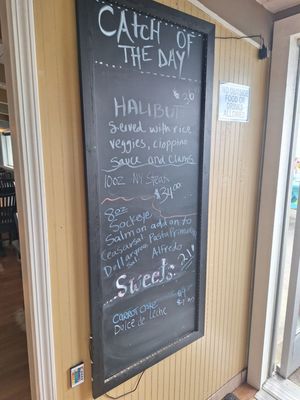 CATCH OF
THE DAY
$26
HALIBUT
Served with rice
veggies, cioppino
sauce and clams
10oz NY Steak
$34.00
8oz
Sockeye
Salmon add on to
Ceasar sal Pasta Primavera
Dollar green Alfredo
sal
21
...Sweets...
Carrot Cake $9
Dolce de leche
NO OUTSIDE
FOOD OR
DRINKS
ALLOWED